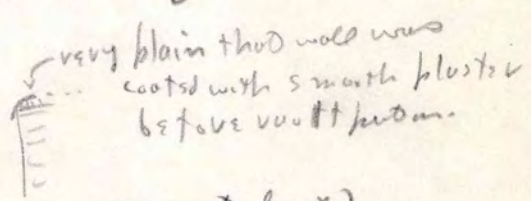 very plain that wall was
coated with smooth plaster
before vault put on.